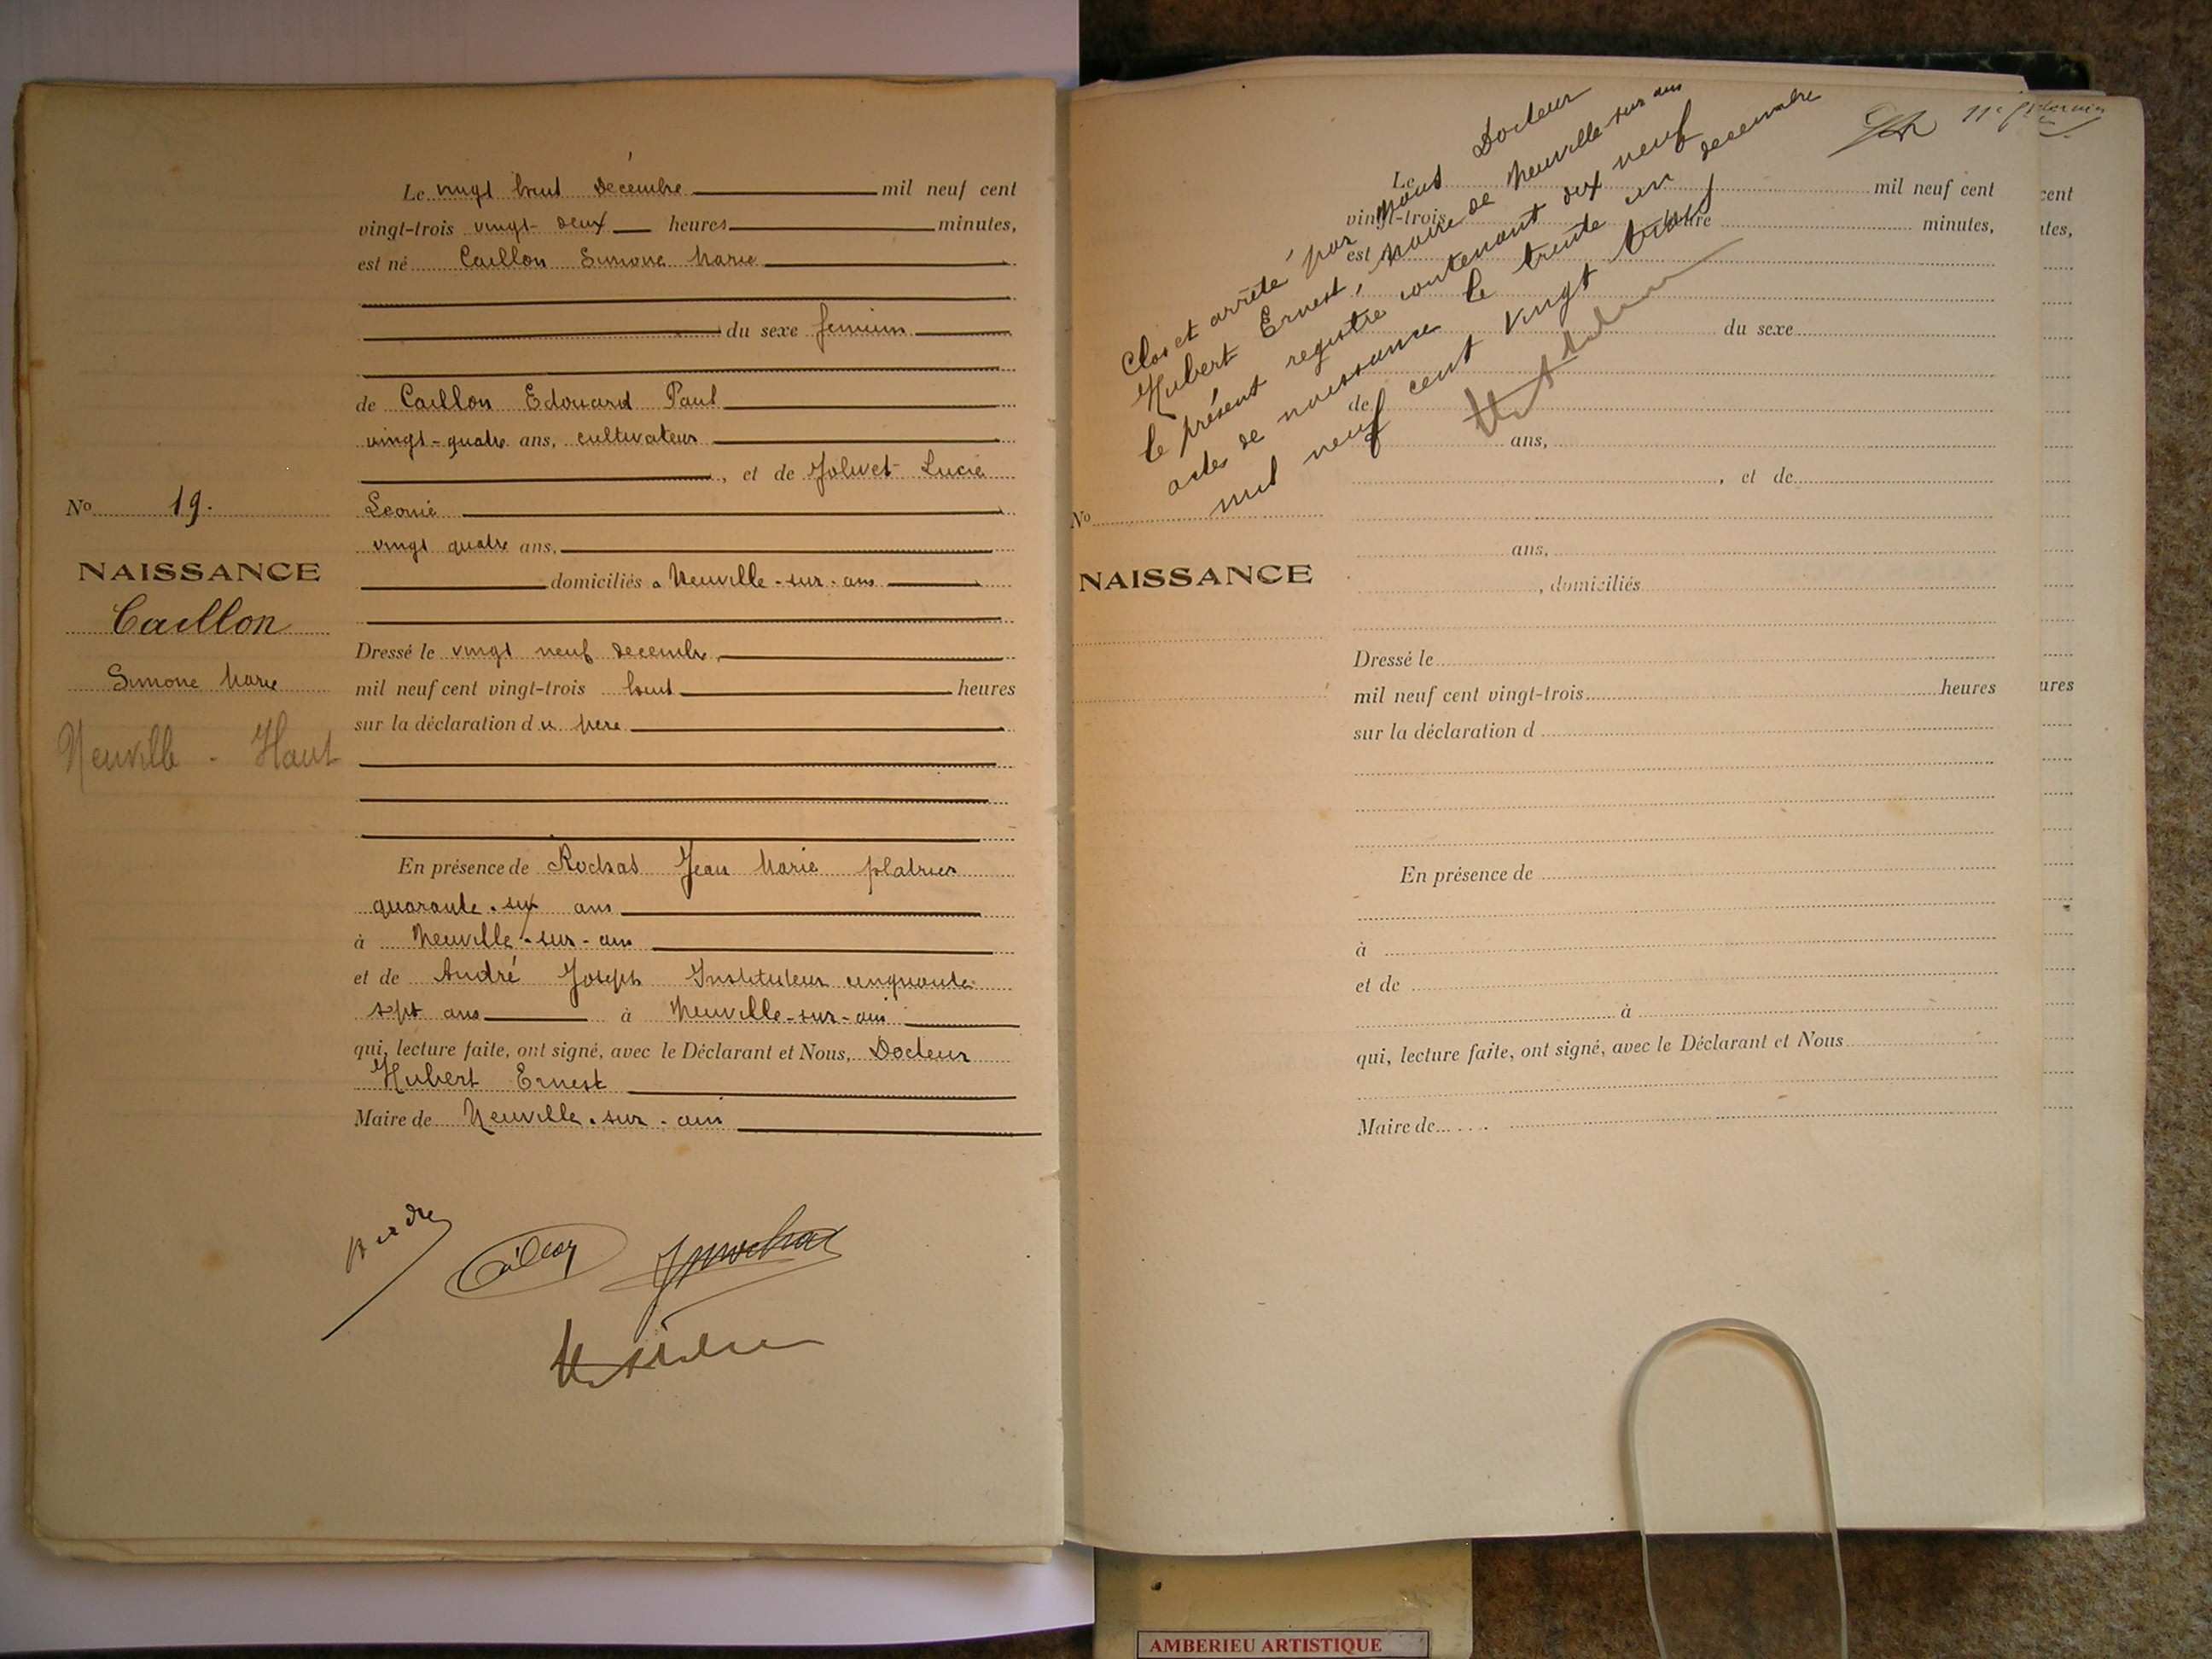 Le vingt huit décembre mil neuf cent
vingt-trois vingt deux heures minutes,
est né Caillon Simone Marie
du sexe feminin
de Caillon Edouard Paul
vingt-quatre ans, cultivateur
, et de Jolivet Lucie
Leonie
vingt quatre ans,
domiciliés a Neuville-sur-ain
Dressé le vingt neuf decembre
mil neuf cent vingt-trois huit heures
sur la déclaration du Père
En présence de Rochas Jean Marie platrier
quarante-six ans
à Neuville-sur-ain
et de André Joseph Instituteur cinquante
sept ans à Neuville-sur-ain
qui, lecture faite, ont signé, avec le Déclarant et Nous, Docteur
Hubert Ernest
Maire de Neuville-sur-ain
No 19.
NAISSANCE
Caillon
Simone Marie
Neuville - Haut
Clos et arrêté par nous Docteur
Hubert Ernest, Maire de Neuville-sur-ain
le présent registre contenant dix neuf
actes de naissance le trente un decembre
mil neuf cent vingt trois
Le mil neuf cent
vingt-trois heure minutes,
est
du sexe
de
ans,
, et de
ans,
, domiciliés
Dressé le
mil neuf cent vingt-trois heures
sur la déclaration d
En présence de
à
et de
à
qui, lecture faite, ont signé, avec le Déclarant et Nous
Maire de
No
NAISSANCE
cent
tes,
ures
AMBERIEU ARTISTIQUE